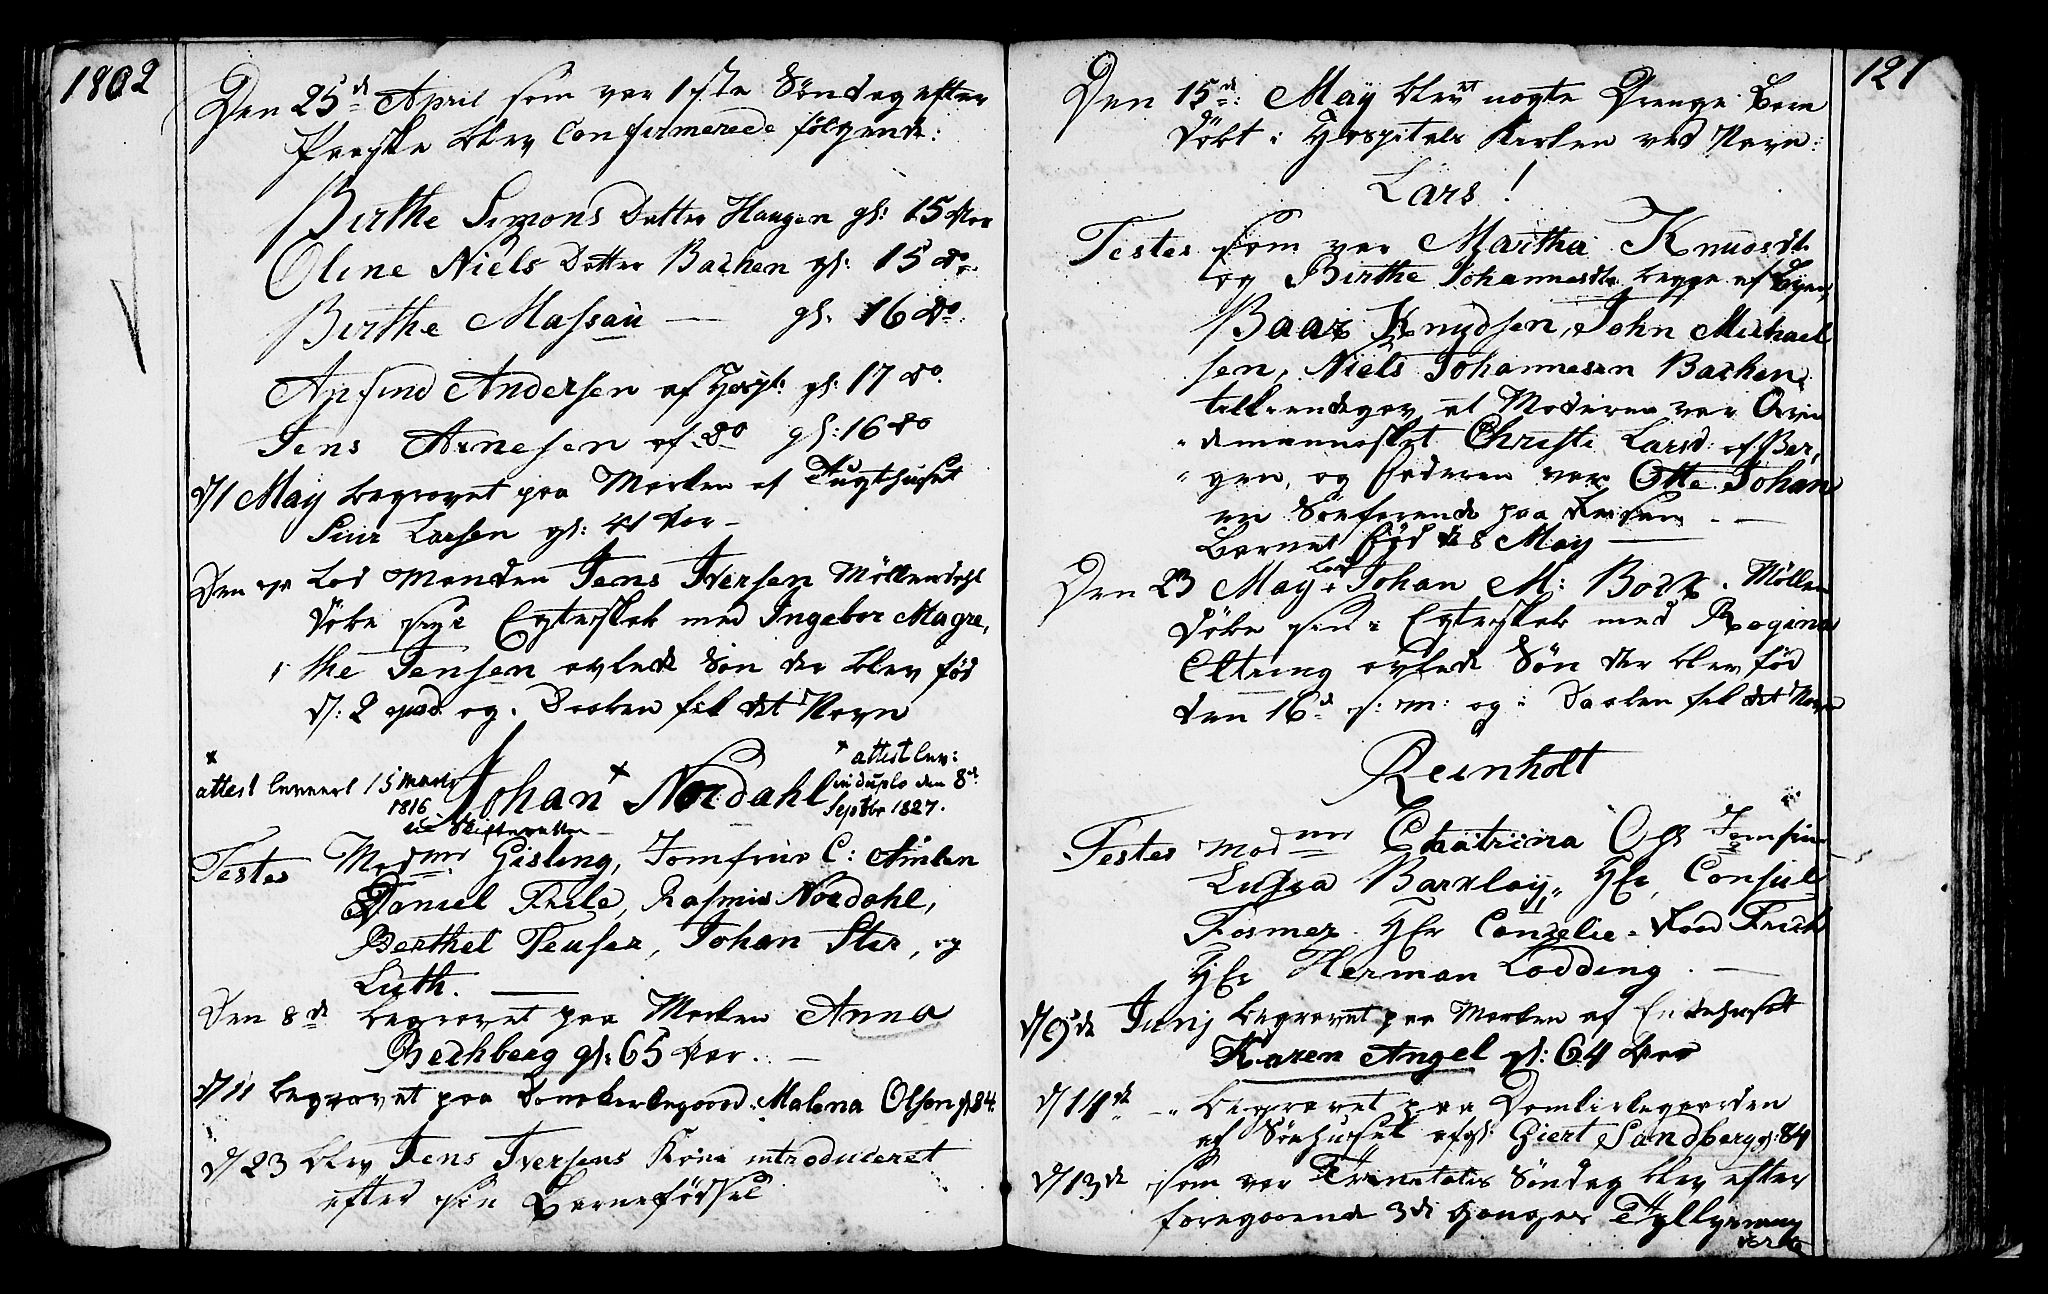 1802
Den 25d April som var 1ste Søndag efter
Paaske blev Confirmerede følgende:
Birthe Simons Datter Haugen gl: 15 Aar
Oline Niels Datter Bachen gl: 15 do
Birthe Massau — gl. 16 do
Andersen af Hospt: gl: 17 do.
Jens Arnesen af do gl: 16 do
d/1 May begravet paa Marken af Tugthuset
Siur Larsen gl: 41 Aar –
Den lod Manden Jens Iversen Möllendahl
døbe sin i Egteskab med Ingebor Magre,
the Jensen avlede Søn der blev fød
d: 2 og i Daaben fik det Navn
x attest leveert 15 Marts
1816
Skifteretten
Johan x Nordahl
x attest lev:
in duplo den 8de
Septbr 1827.
Testes Madme Gisling, Jomfrue C:
Daniel Friele, Rasmus Nordahl,
Berthel Teuser, Johan Ster, og
Luth.
Den 8de begravet paa Marken Anna
Bechberg gl: 65 Aar. –
d/11 begravet paa Malena Olsen gl 84.
d/23 blev Jens Iversens Kone introduceret
efter sin Barnefødsel
121
Den 15de: May blev et uægte Drenge Barn
døbt i Hospitals Kirken ved Navn:
Lars!
Testes som var Martha Knudsdt.
og Birthe Johannesdtr begge af Byen,
Baar Knudsen, John Michael
sen, Niels Johannesen Bachen,
tilkiendegav at Moderen var Qvin
demennesket Christi Larsd: af Ber,
gen, og Faderen var Otte Johan
en Søefarende paa
Barnet fød d 8 May —
Den 23 May lod Johan M: Böck. Möllen
døbe sin i Egteskab med Regina
Eltring avlede Søn der blev fød
den 16d s: m: og i Daaben fik det Navn
Reinholt
Testes Madme Chatrina Jomfrue
Luisa Barclay, Hr, Consul
Fasmer. Hr Cancelie-Raad Frich
Hr Herman Lodding. —
d/9de Junij begravet paa Marken af Enkehuset
Karen Angel gl: 64 Aar
d/11de –" begravet paa Domkirkegaarden
af Søehuset afgl: Giert Sandberg gl: 84
d/13de som var Trinitatis Søndag blev efter
foregaaende 3de Ganges Tillysning